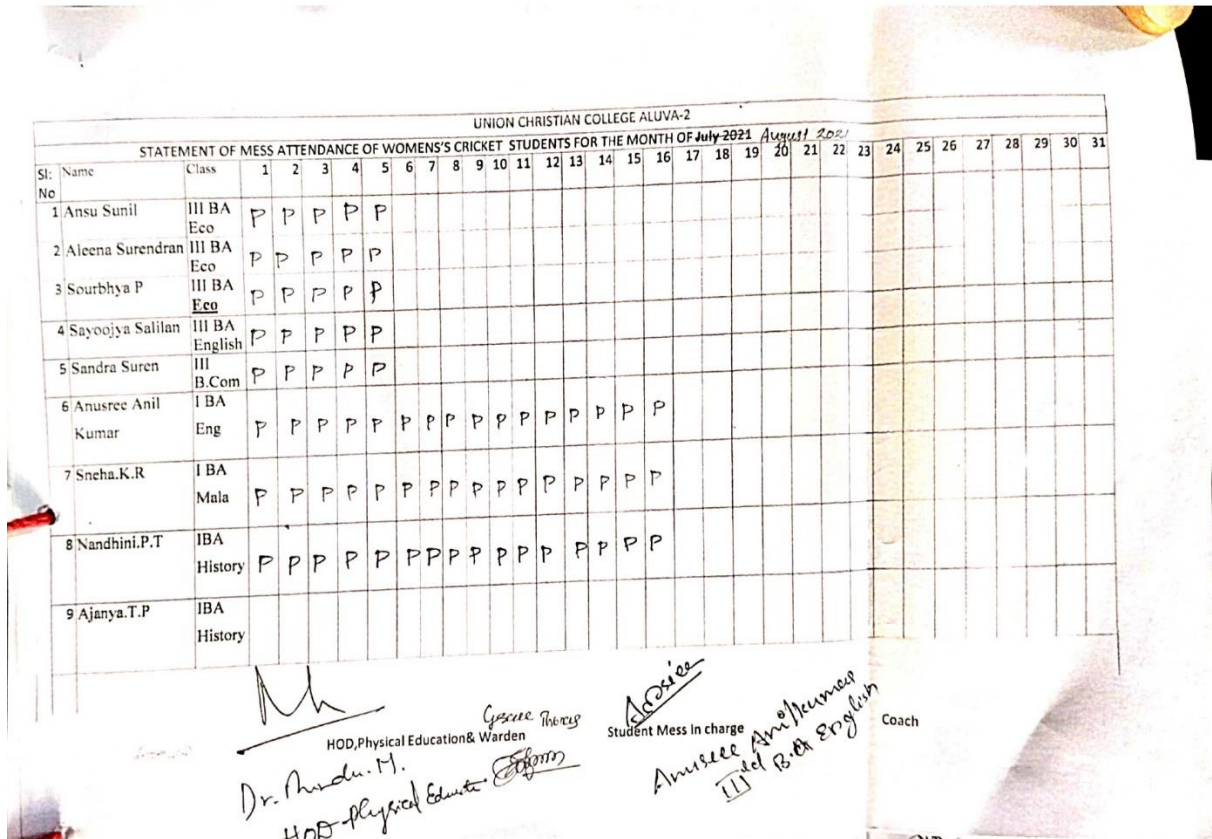 UNION CHRISTIAN COLLEGE ALUVA-2
STATEMENT OF MESS ATTENDANCE OF WOMENS'S CRICKET STUDENTS FOR THE MONTH OF July 2021 August 2021
Sl: No Name Class 1 2 3 4 5 6 7 8 9 10 11 12 13 14 15 16 17 18 19 20 21 22 23 24 25 26 27 28 29 30 31
1 Ansu Sunil III BA Eco P P P P P
2 Aleena Surendran III BA Eco P P P P P
3 Sourbhya P III BA Eco P P P P P
4 Sayoojya Salilan III BA English P P P P P
5 Sandra Suren III B.Com P P P P P
6 Anusree Anil Kumar I BA Eng P P P P P P P P P P P P P P P P
7 Sneha.K.R I BA Mala P P P P P P P P P P P P P P P P
8 Nandhini.P.T IBA History P P P P P P P P P P P P P P P P
9 Ajanya.T.P IBA History
HOD,Physical Education& Warden Student Mess In charge Coach
Dr. M.
HOD Physical
Anusree Anilkumar
B.A English